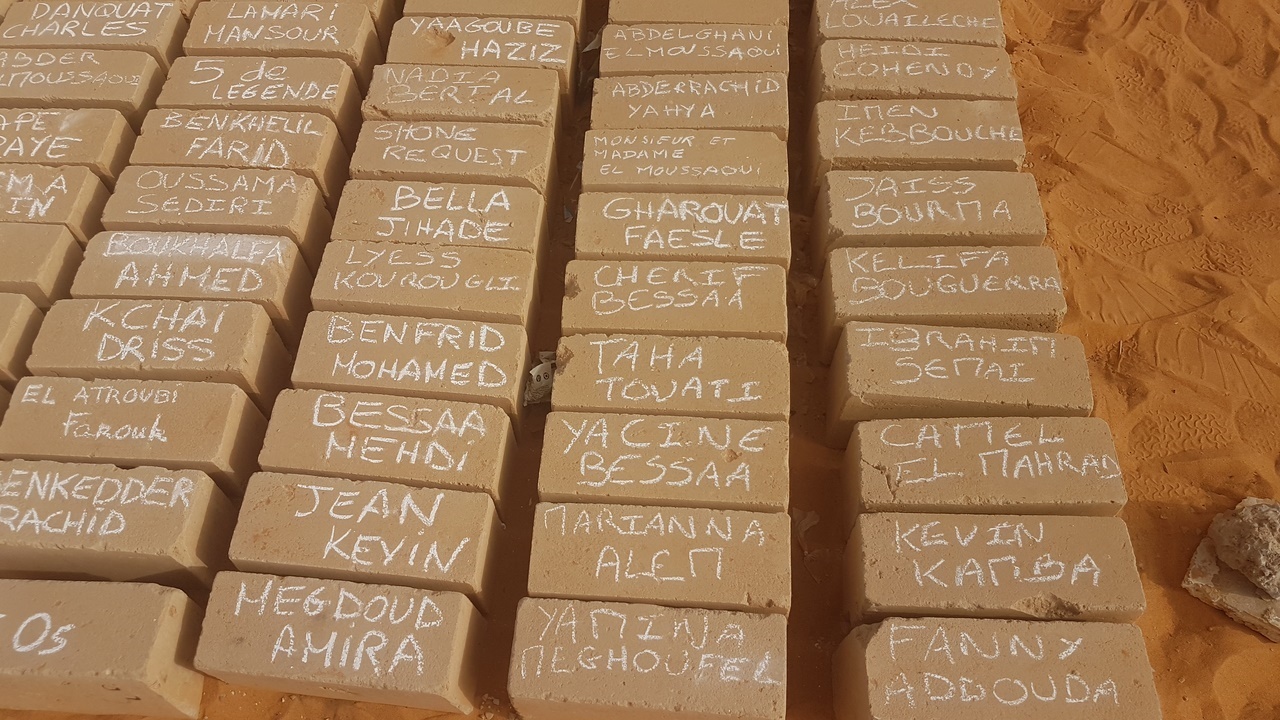 DANQUAT
CHARLES
ABDER
ELMOUSSAOUI
EL ATROUBI
Farouk
BENKEDDER
RACHID
Os
LAMARI
MANSOUR
5 de
LEGENDE
BENKHELIL
FARID
OUSSAMA
SEDIRI
BOUKHALFA
AHMED
KCHAI
DRISS
YAAGOUBE
HAZIZ
NADIA
BERTAL
SHONE
REQUEST
BELLA
JIHADE
LYESS
KOUROUGLI
BENFRID
MOHAMED
BESSAA
MEHDI
JEAN
KEVIN
MEGDOUD
AMIRA
ABDELGHANI
ELMOUSSAOUI
ABDERRACHID
YAHYA
MONSIEUR ET
MADAME
EL MOUSSAOUI
GHAROUAT
FAESLE
CHERIF
BESSAA
TAHA
TOUATI
YACINE
BESSAA
MARIANNA
ALEM
YAMINA
MEGHOUFEL
ALEX
LOUAILECHE
HEIDI
COHENDY
IMEN
KEBBOUCHE
JAISS
BOURMA
KELIFA
BOUGUERRA
IBRAHIM
SEMAI
CAMEL
EL MAHRAD
KEVIN
KAMBA
FANNY
ADDOUDA